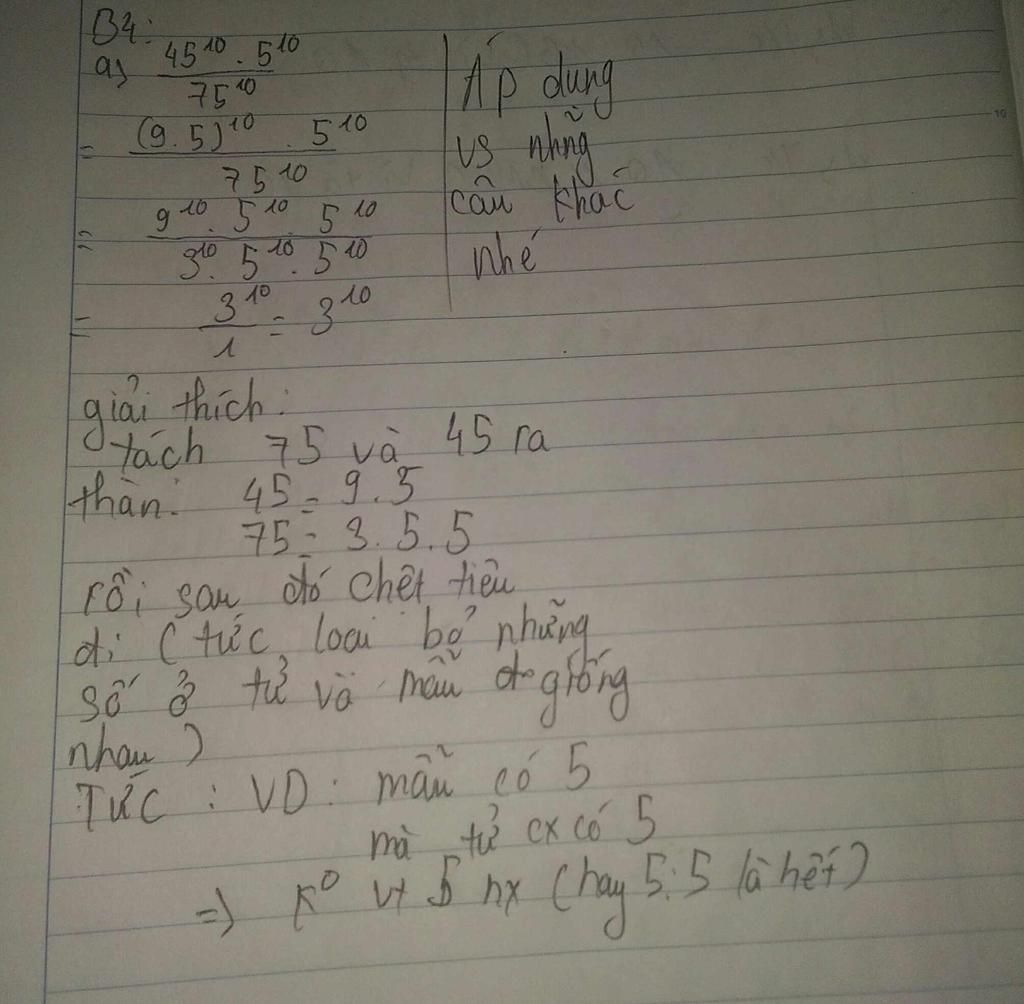 B4:
a) 45^10 . 5^10 / 75^10
= (9.5)^10 . 5^10 / 75^10
= 9^10 . 5^10 . 5^10 / 3^10 . 5^10 . 5^10
= 3^10 / 1 = 3^10
Áp dung
vs nhñg
câu khác
nhé
giải thích:
tách 75 và 45 ra
thàn: 45 = 9.5
75 = 3.5.5
rồi sau đó chêt tiêu
đi (tức loai bỏ những
số ở tử và mẫu giống
nhau)
TỨC : VD : mẫu có 5
mà tử cx có 5
=> K^0 vt 5 nx (hay 5:5 là hết)